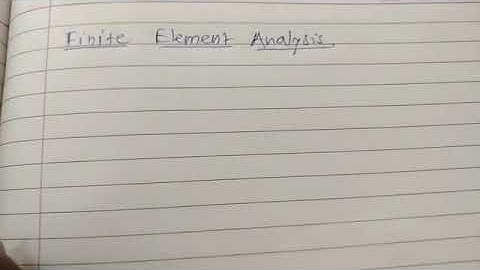 Finite Element Analysis.